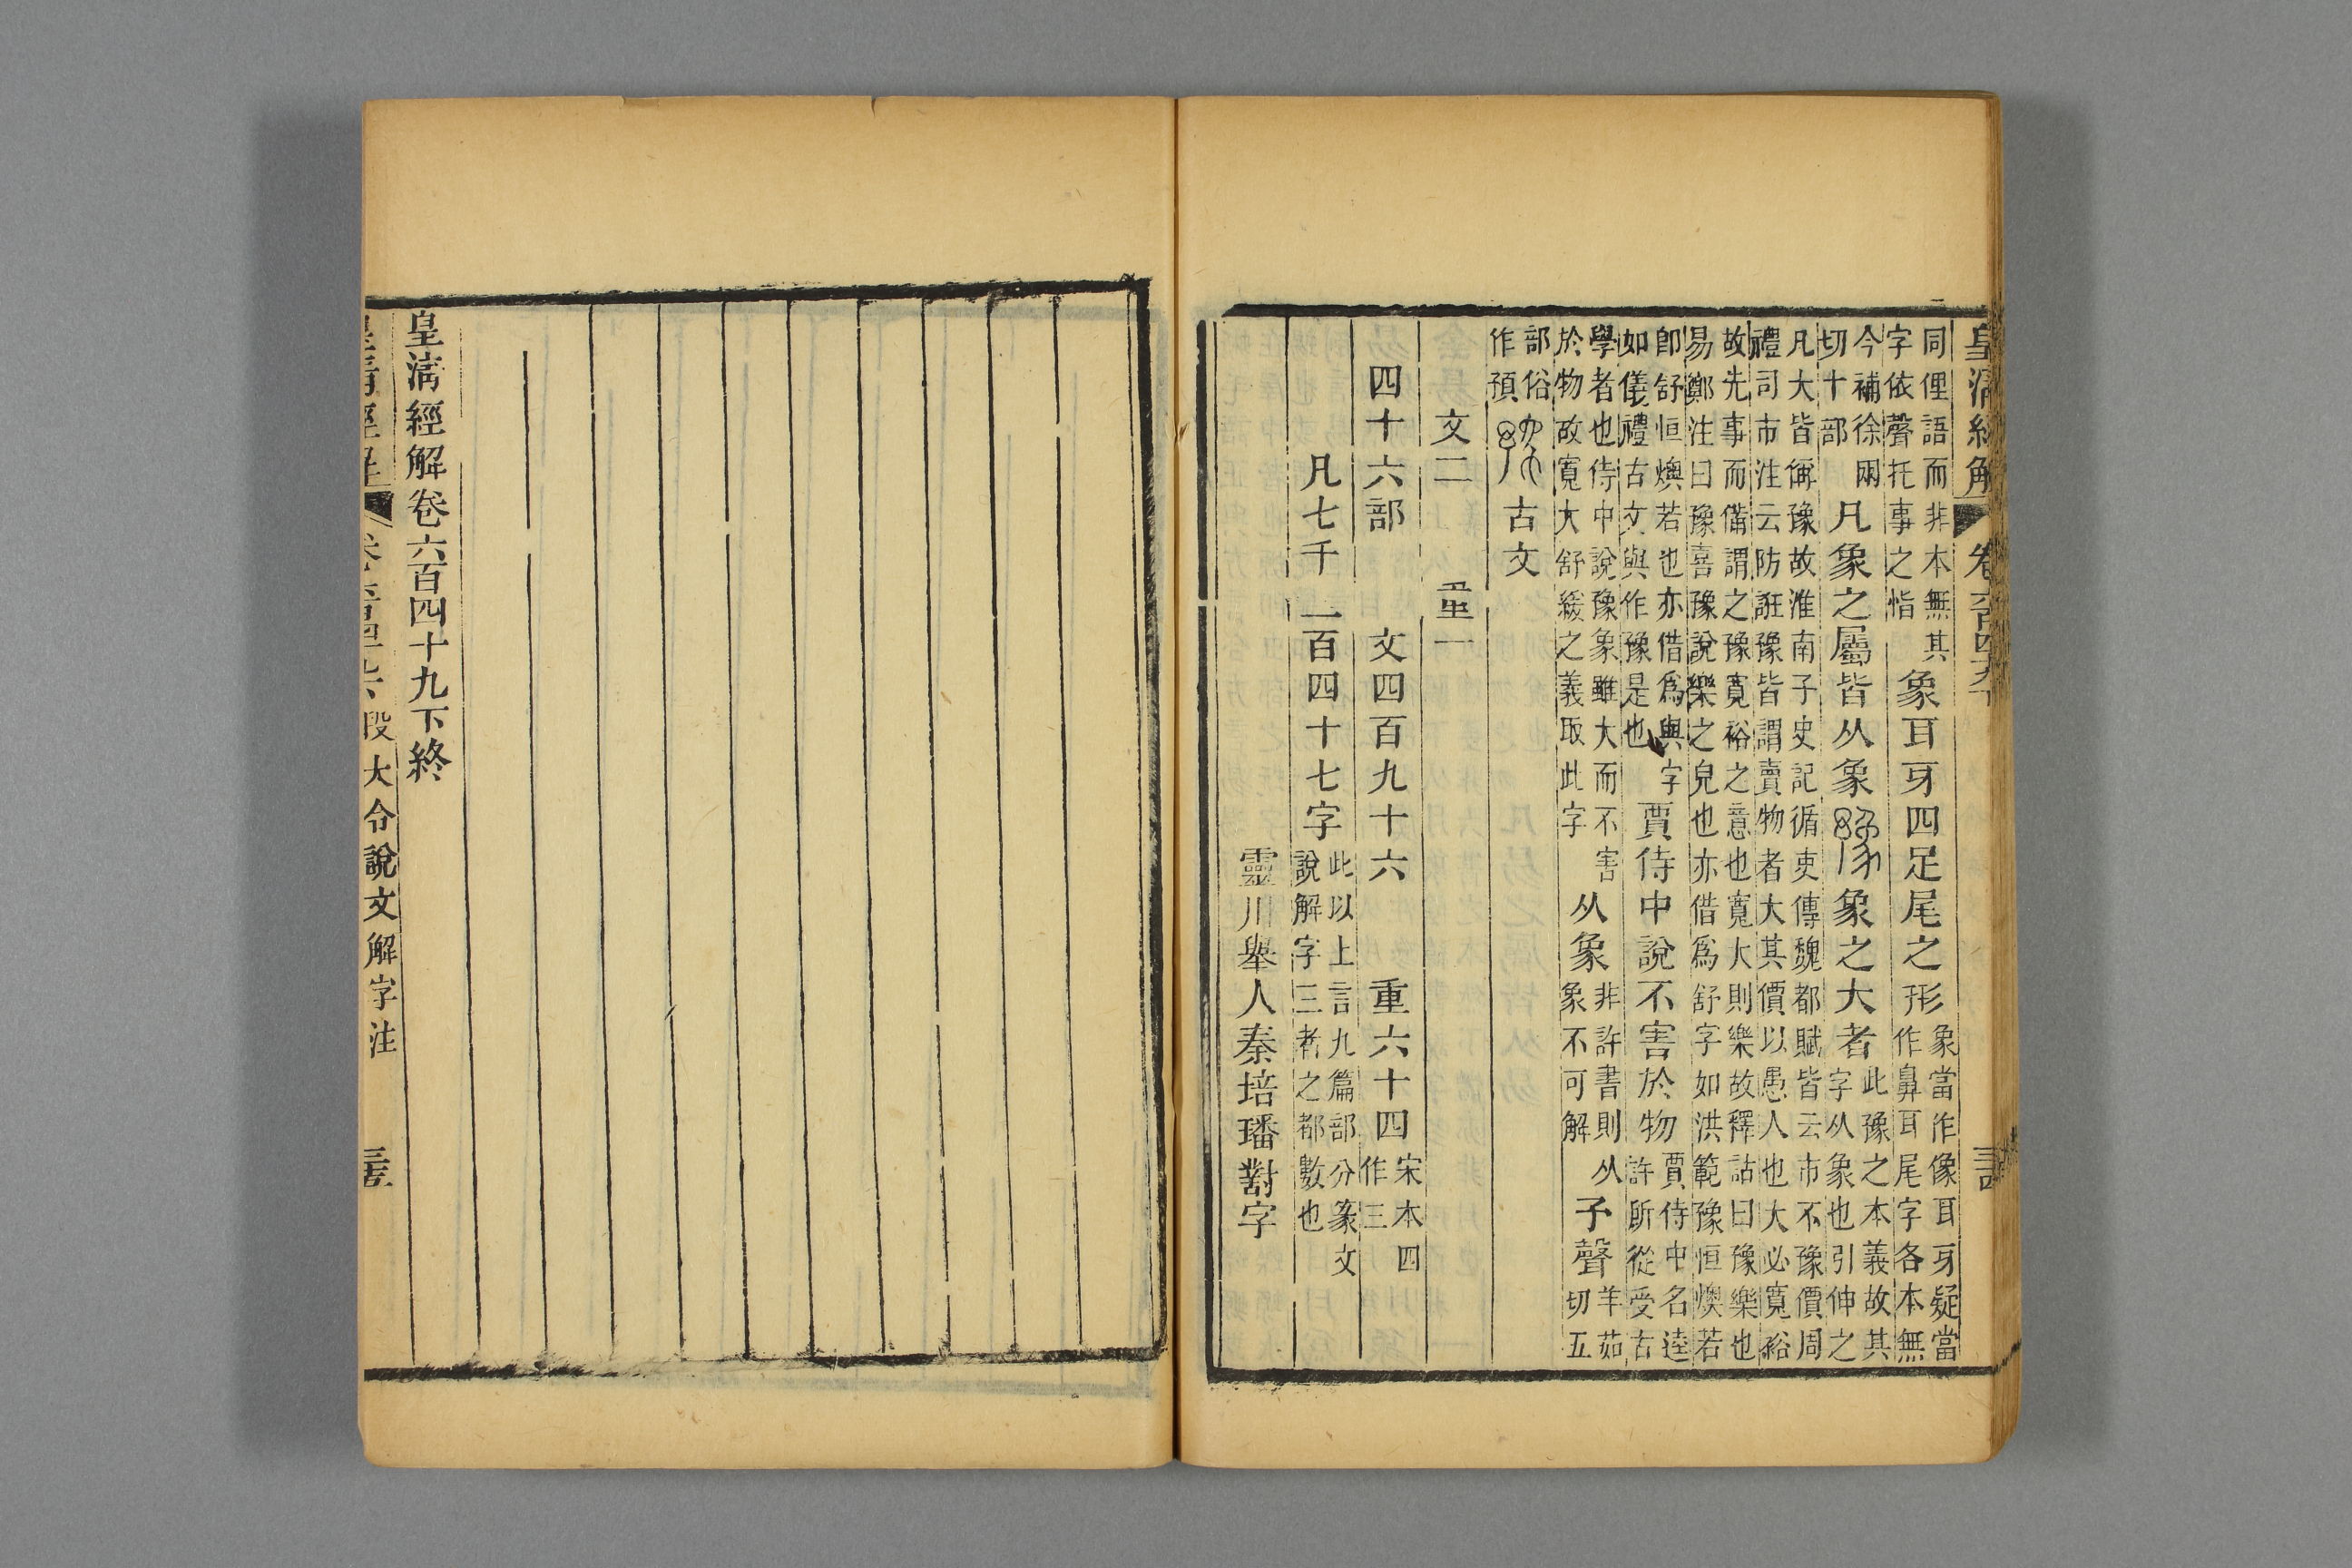 皇清經解 卷六百四十九下 三十四
同俚語而非本無其
字依聲托事之恉
象耳牙四足尾之形
象當作像耳牙疑當
作鼻耳尾字各本無
今補徐㒳
切十部
凡象之屬皆从象 豫 象之大者
此豫之本義故其
字从象也引伸之
凡大皆偁豫故淮南子史記循吏傳魏都賦皆云市不豫價周
禮司市注云防誑豫皆謂賣物者大其價以愚人也大必寬裕
故先事而備謂之豫寬裕之意也寬大則樂故釋詁曰豫樂也
易鄭注曰豫喜豫說樂之皃也亦借爲舒字如洪範豫恒燠若
卽舒恒燠若也亦借爲與字
如儀禮古文與作豫是也
賈侍中說不害於物
賈侍中名逵
許所從受古
學者也侍中說豫象雖大而不害
於物故寬大舒緩之義取此字
从象
非許書則
象不可解
从子聲
羊茹
切五
部俗
作預
古文
文二 重一
四十六部 文四百九十六 重六十四
宋本四
作三
凡七千一百四十七字
此以上言九篇部分篆文
說解字三者之都數也
靈川舉人秦培璠對字
皇清經解卷六百四十九下終
皇清經解 段大令說文解字注 三十五